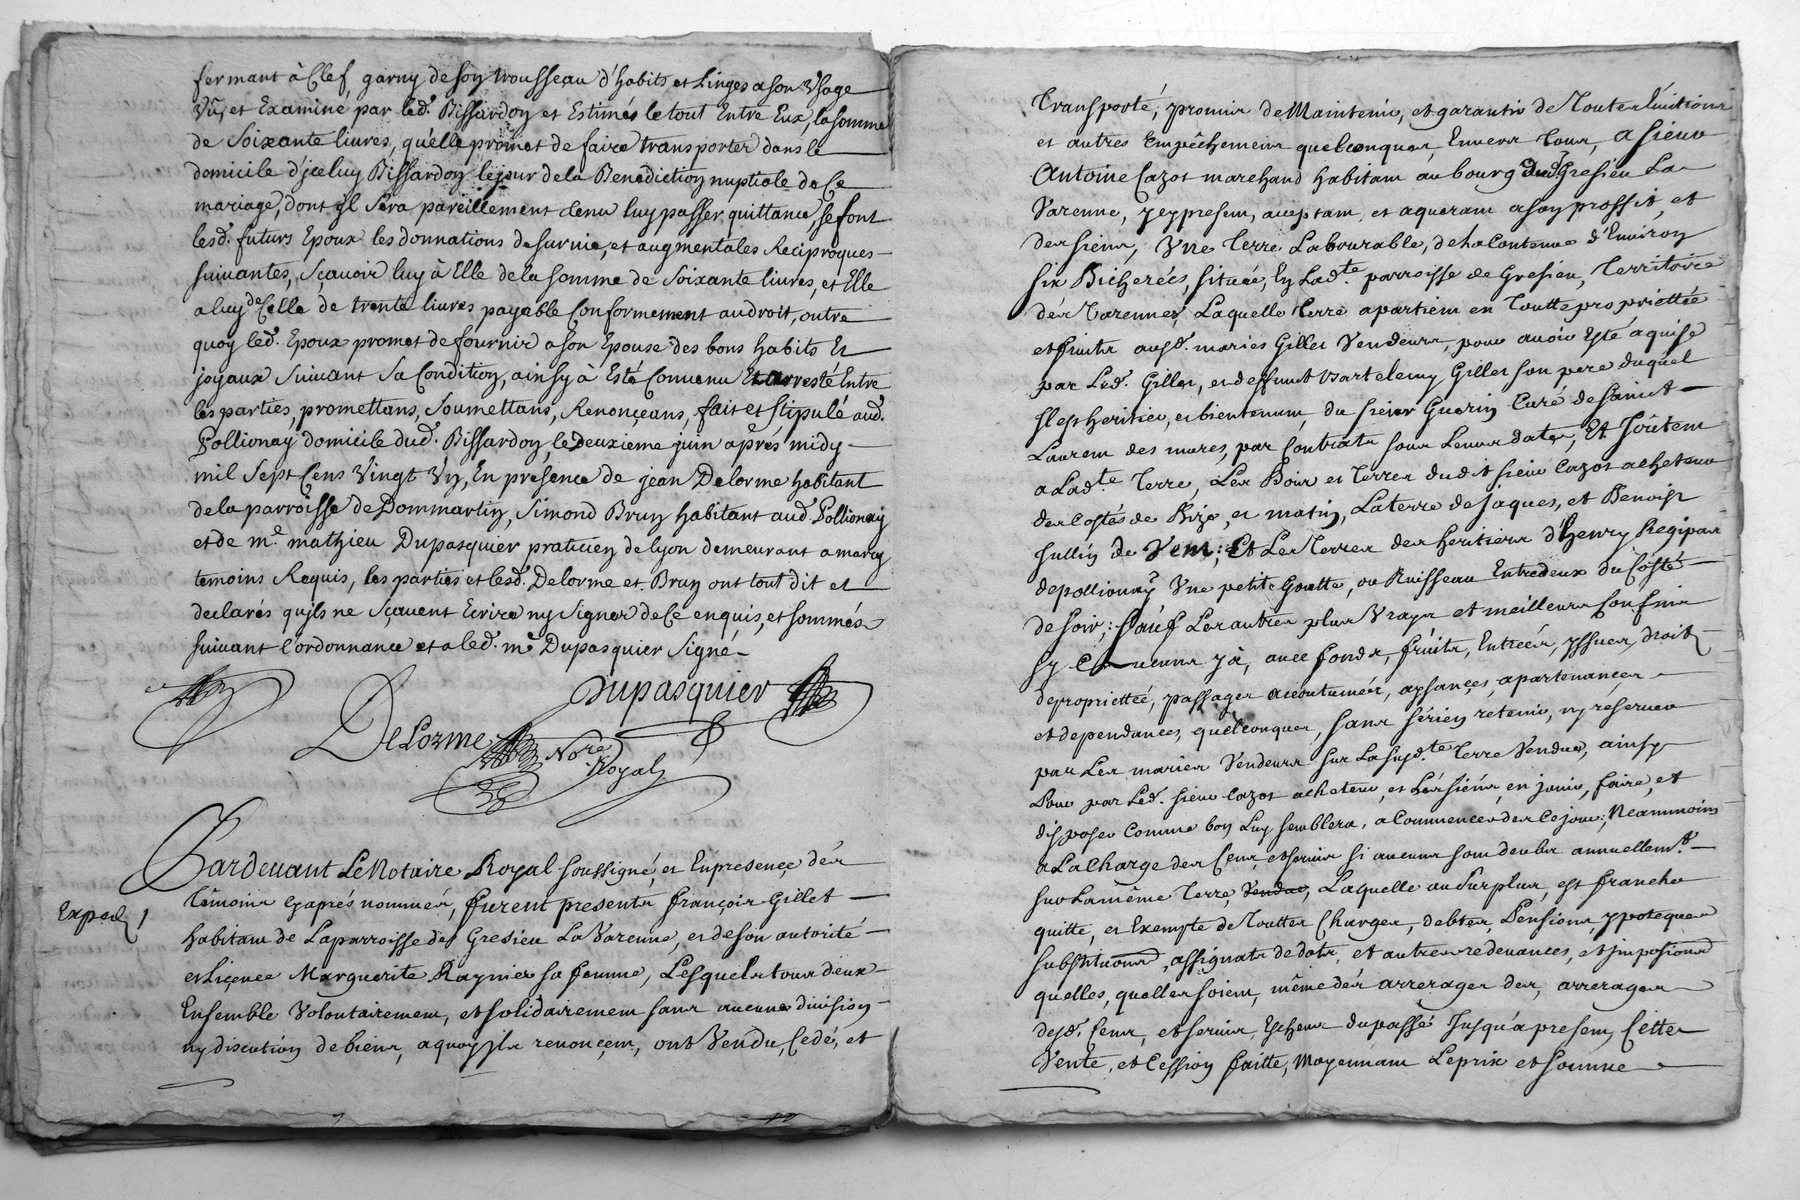 fermant à Clef, garny de son trousseau d'habits et Linges a son Usage
Vû, et Examiné par led. Bissardon et Estimés le tout Entre Eux, la somme
de Soixante livres, qu'elle promet de faire transporter dans le
domicile d'jceluy Bissardon le jour de la Benediction nuptiale de Ce
mariage, dont jl sera pareillement tenu luy passer quittance, se font
lesd. futurs Epoux les donnations de survie, et augmentales Reciproques
suivantes, Sçavoir luy à Elle de la somme de Soixante livres, et Elle
a luy de Celle de trente livres payable Conformement au droit, outre
quoy led. Epoux promet de fournir a son Epouse des bons habits Et
joyaux suivant sa Condition, ainsy à Esté Convenu Et arresté Entre
les parties, promettans, Soumettans, Renonçeans, fait et stipulé aud.
Pollionay domicile dud. Bissardon, le deuxieme juin aprés midy
mil Sept Cens Vingt Un, En presence de jean Delorme habitant
de la parroisse de Dommartin, Simond Brun habitant aud. Pollionay
et de me. mathieu Dupasquier praticien de lyon demeurant a marcy
temoins Requis, les parties et lesd. Delorme et Brun ont tout dit et
declarés qu'ils ne Sçavent Ecrire ny Signer de Ce enquis, et sommés
suivant l'ordonnance et a led. me Dupasquier Signé
Dupasquier
DeLorme Nore.
Royal
Pardevant Le Notaire Royal soussigné, et En presençe dés
Exped.
Témoins cy aprés nommés, furent presents françois Gillet
habitant de La parroisse de Gresieu La Varenne, et de son autorité
et Liçence Marguerite Raynier sa femme, Lesquels tous deux
Ensemble Volontairement, et solidairement sans aucune division
ny discution de biens, a quoy jls renonçent, ont Vendu, Cedé, et
Transporté, promis de Maintenir, et garantir de Toutes Evitions
et autres Empêchements quelconques, Envers Tous, a sieur
Antoine Cazot marchand habitant au bourg dud. Gresieu La
Varenne, jcy present, aceptant, et aquerant a son proffit, et
des siens, Une Terre Labourable, de la Contenue d'Environ
six Bicherées, située, En Ladte. parroisse de Gresieu, Territoire
dés Varennes, Laquelle Terre apartient en Toutte propriettée
et fruits ausd. mariés Gillet Vendeurs, pour avoir Esté aquise
par Led. Gillet, et deffunt Bartelemy Gillet son pere duquel
jl est heritier, et bientenant, du sieur Guerin Curé de Saint
Laurent des mures, par Contrats sous Leurs dates, Et Joûtent
a Ladte. Terre, Les Bois et Terres dudit sieur Cazot acheteur
des Costés de Bize, et matin, La terre de Jaques, et Benoist
Jullin de Vent; Et Les Terres des heritiers d'henry Regipas
de pollionay Une petite Goutte, ou Ruisseau Entredeux du Côsté
de soir; sauf Les autres plus Vrays et meilleurs Confins
sy aucuns y a, avec fonds, fruits, Entrées, yssues, droits
de propriettée, passages accoutumés, aysançes, apartenançes
et dependances, quelconques, sans s'érien retenir, ny reserver
par Les mariés Vendeurs sur La susdte. Terre Vendue, ainsy
Pour par Led. sieur Cazot acheteur, et Les siens, en jouir, faire, et
disposer Comme bon Luy semblera, a Commencer des Ce jour; Neammoins
a La Charge des Cens, et servis si aucuns sont deubs annuellemt.
sur La même Terre, Vendue, Laquelle au Surplus, est franche
quitte, et Exempte de Touttes Charges, debtes, Pensions, ypoteques
substitutions, assignats de dots, et autres redevances, et jmpositions
quelles, quelles soient, même dés arrerages des, arrerages
desd. Cens, et servis, Escheus du passé Jusqu'a present, Cette
Vente, et Cession faitte, Moyennant Le prix et somme